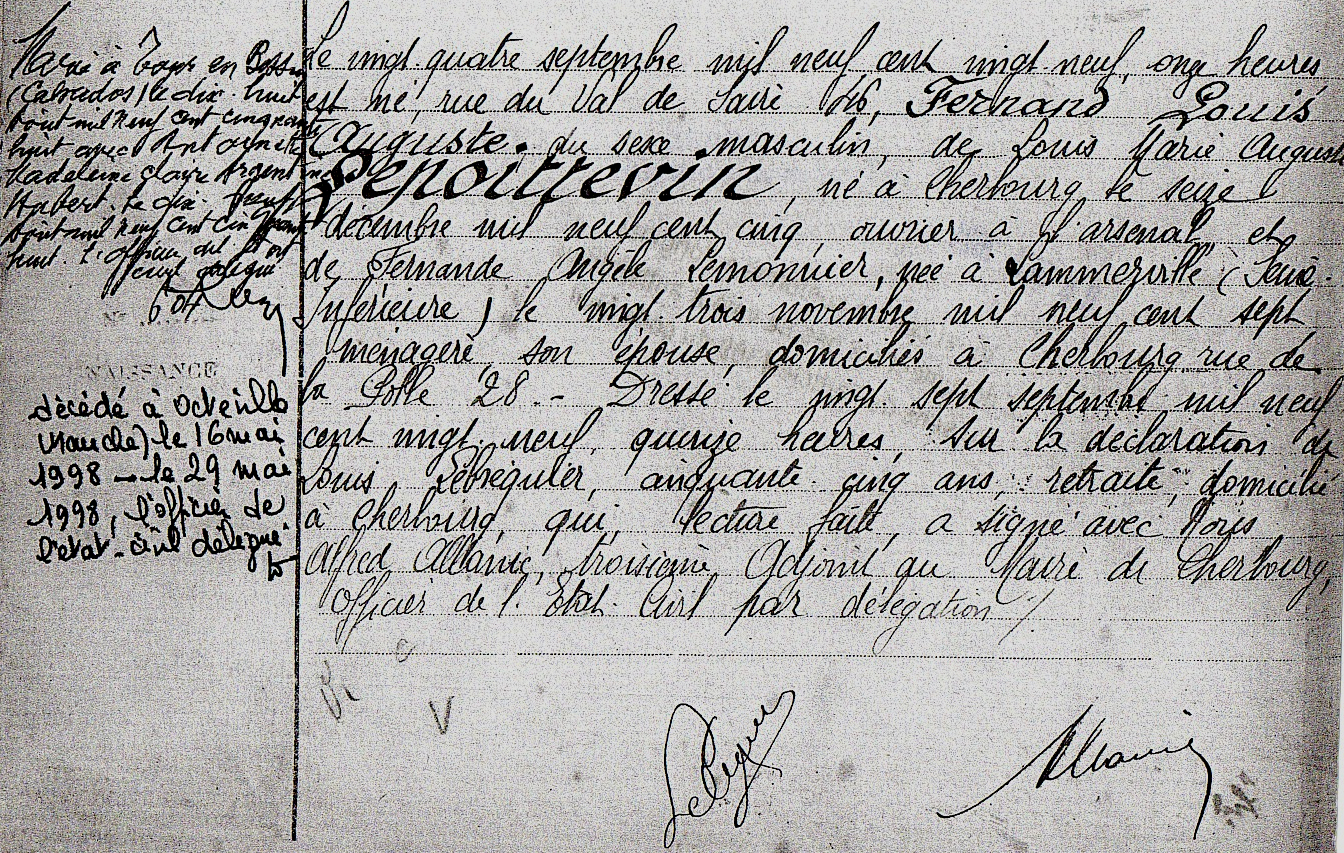 Marié à Tours en Bessin
(Calvados) le dix huit
août mil neuf cent cinquante
huit avec Antoinette
Madeleine Claire Argentine
Aubert. le dix neuf
août mil neuf cent cinquante
huit. l'officier de l'état
civil délégué
NAISSANCE
décédé à Octeville
(Manche) le 16 mai
1998 — le 29 mai
1998, l'officier de
l'état-civil délégué
Le vingt quatre septembre mil neuf cent vingt neuf, onze heures
est né, rue du Val de Saire 46, Fernand Louis
Auguste. du sexe masculin, de Louis Marie Auguste
Lepoittevin, né à Cherbourg le seize
décembre mil neuf cent cinq, ouvrier à l'arsenal, et
de Fernande Angèle Lemonnier, née à Lammerville (Seine-
Inférieure) le vingt trois novembre mil neuf cent sept,
ménagère, son épouse, domiciliés à Cherbourg rue de
la Polle 28. - Dressé le vingt sept septembre mil neuf
cent vingt neuf, quinze heures, sur la déclaration de
Louis, cinquante cinq ans, retraité, domicilié
à Cherbourg, qui, lecture faite, a signé avec Nous
Alfred Allanic, troisième Adjoint au Maire de Cherbourg,
Officier de l'Etat-Civil par délégation /
V
Allanic